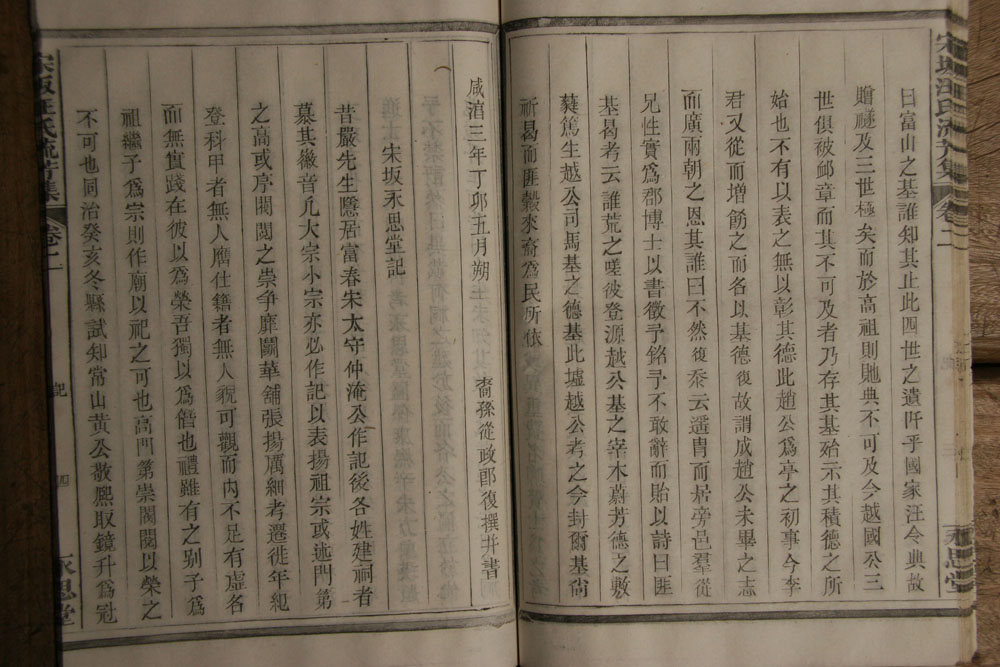 曰富山之基誰知其止此四世之遺阡乎國家汪令典故
贈襚及三世極矣而於高祖則貤典不可及今越國公三
世俱被䘏章而其不可及者乃存其基始示其積德之所
始也不有以表之無以彰其德此趙公爲亭之初事今李
君又從而增飭之而名以基德復故謂成趙公未畢之志
而廣兩朝之恩其誰曰不然復忝云遥胄而居旁邑羣從
兄性實爲郡博士以書徵予銘予不敢辭而貽以詩曰匪
基曷考云誰荒之嗟彼登源越公基之宰木蔚芳德之敷
蕤篤生越公司馬基之德基此墟越公考之今封爾基尙
祈曷而匪穀來裔爲民所依
咸淳三年丁卯五月朔
裔孫從政郎復撰并書
宋坂永思堂記
昔嚴先生隱居富春朱太守仲淹公作記後各姓建祠者
慕其徽音凡大宗小宗亦必作記以表揚祖宗或述門第
之高或序閥閱之崇爭靡鬬華舖張揚厲細考遷徙年紀
登科甲者無人膺仕籍者無人貌可觀而内不足有虛名
而無實踐在彼以爲榮吾獨以爲僭也禮雖有之别子爲
祖繼子爲宗則作廟以祀之可也高門第崇閥閱以榮之
不可也同治癸亥冬縣試知常山黄公敬熙取鏡升爲冠
宋坂汪氏流芳集
卷二
記
四
永思堂
宋坂汪氏流芳集
卷二
永思堂